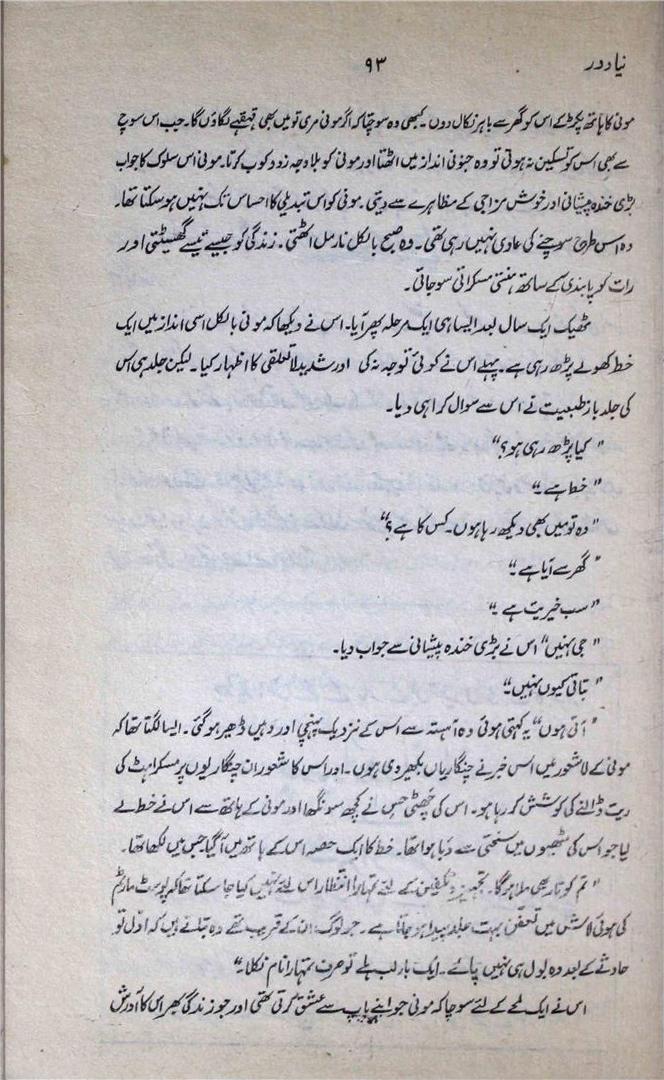 نیا دور ۹۳
مونی کا ہاتھ پکڑ کے اس کو گھر سے باہر نکال دوں۔ کبھی وہ سوچتا کہ اگر مونی مری تو میں بھی قہقہے لگاؤں گا۔ جب اس سوچ
سے بھی اس کو تسکین نہ ہوتی تو وہ جنونی انداز میں اٹھتا اور مونی کو بلاوجہ زدوکوب کرتا۔ مونی اس سلوک کا جواب
بڑی خندہ پیشانی اور خوش مزاجی کے مظاہرے سے دیتی۔ مونی کو اس تبدیلی کا احساس تک نہیں ہو سکتا تھا۔
وہ اس طرح سوچنے کی عادی نہیں رہی تھی۔ وہ صبح بالکل نارمل اٹھتی۔ زندگی کو جیسے تیسے گھسیٹتی اور
رات کو پابندی کے ساتھ ہنستی مسکراتی سو جاتی۔
ٹھیک ایک سال بعد ایسا ہی ایک مرحلہ پھر آیا۔ اس نے دیکھا کہ مونی بالکل اسی انداز میں ایک
خط کھولے پڑھ رہی ہے۔ پہلے اس نے کوئی توجہ نہ کی اور شدید لاتعلقی کا اظہار کیا۔ لیکن جلد ہی اس
کی جلد باز طبیعت نے اس سے سوال کرا ہی دیا۔
"کیا پڑھ رہی ہو؟"
"خط ہے۔"
"وہ تو میں بھی دیکھ رہا ہوں۔ کس کا ہے؟"
"گھر سے آیا ہے۔"
"سب خیریت ہے۔"
"جی نہیں" اس نے بڑی خندہ پیشانی سے جواب دیا۔
"بتاتی کیوں نہیں۔"
"آتی ہوں" یہ کہتی ہوئی وہ آہستہ سے اس کے نزدیک پہنچی اور وہیں ڈھیر ہو گئی۔ ایسا لگتا تھا کہ
مونی کے لاشعور میں اس خبر نے چنگاریاں بکھیر دی ہوں۔ اور اس کا شعور ان چنگاریوں پر مسکراہٹ کی
ریت ڈالنے کی کوشش کر رہا ہو۔ اس کی چھٹی حس نے کچھ سونگھا اور مونی کے ہاتھ سے اس نے خط لے
لیا جو اس کی مٹھیوں میں سختی سے دبا ہوا تھا۔ خط کا ایک حصہ اس کے ہاتھ میں آ گیا جس میں لکھا تھا۔
"تم کو تار بھی ملا ہو گا۔ تجہیز و تکفین کے لئے تمہارا انتظار اس لئے نہیں کیا جا سکتا تھا کہ پوسٹ مارٹم
کی ہوئی لاش میں تعفن بہت جلد پیدا ہو جاتا ہے۔ جو لوگ ان کے قریب تھے وہ بتلاتے ہیں کہ اول تو
حادثے کے بعد وہ بول ہی نہیں پائے۔ ایک بار لب ہلے تو صرف تمہارا نام نکلا۔"
اس نے ایک لمحے کے لئے سوچا کہ مونی جو اپنے باپ سے عشق کرتی تھی اور جو زندگی بھر اس کا آدرش